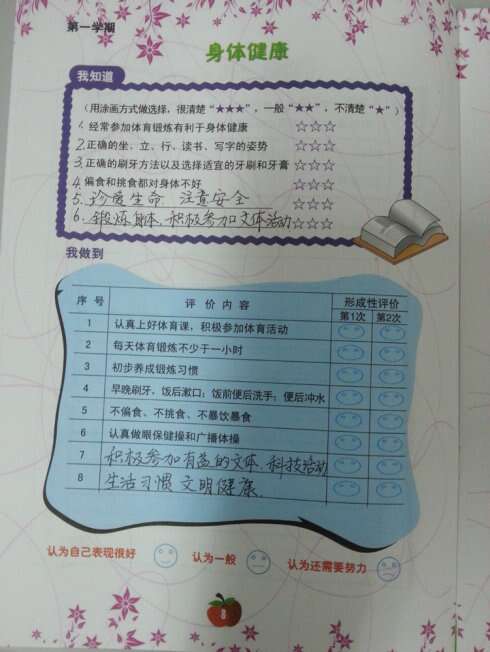 第一学期
身体健康
我知道
(用涂画方式做选择，很清楚“★★★”，一般“★★”，不清楚“★”)
1.经常参加体育锻炼有利于身体健康 ☆☆☆
2.正确的坐、立、行、读书、写字的姿势 ☆☆☆
3.正确的刷牙方法以及选择适宜的牙刷和牙膏 ☆☆☆
4.偏食和挑食都对身体不好 ☆☆☆
5.珍爱生命 注意安全 ☆☆☆
6.锻炼身体、积极参加文体活动 ☆☆☆
我做到
序号 评价内容 形成性评价
第1次 第2次
1 认真上好体育课，积极参加体育活动
2 每天体育锻炼不少于一小时
3 初步养成锻炼习惯
4 早晚刷牙，饭后漱口；饭前便后洗手；便后冲水
5 不偏食、不挑食、不暴饮暴食
6 认真做眼保健操和广播体操
7 积极参加有益的文体、科技活动
8 生活习惯 文明健康.
认为自己表现很好 认为一般 认为还需要努力
8